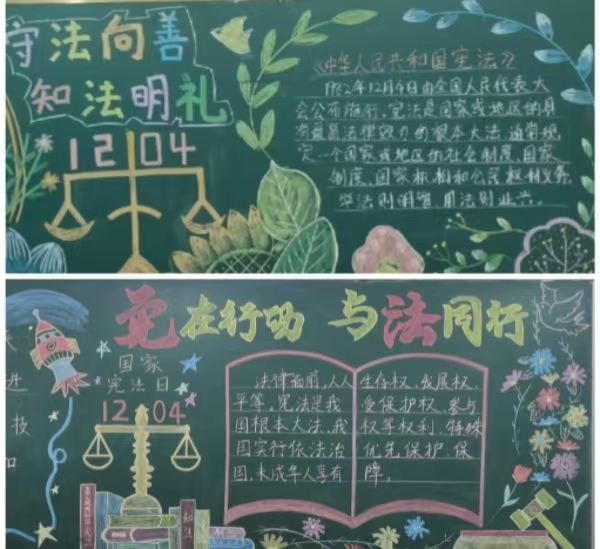 守法向善
知法明礼
12 04
《中华人民共和国宪法》
1982年12月4日由全国人民代表大
会公布施行。宪法是国家或地区的具
有最高法律效力的根本大法,通常规
定一个国家或地区的社会制度、国家
制度、国家机构和公民权利义务
学法则明智,用法则业兴。
在行动 与法同行
国家
宪法日
12 04
进
技
法律面前,人人
平等。宪法是我
国根本大法,我
国实行依法治
国,未成年人享有
生存权、发展权、
受保护权、参与
权等权利,特殊
优先保护、保
障,